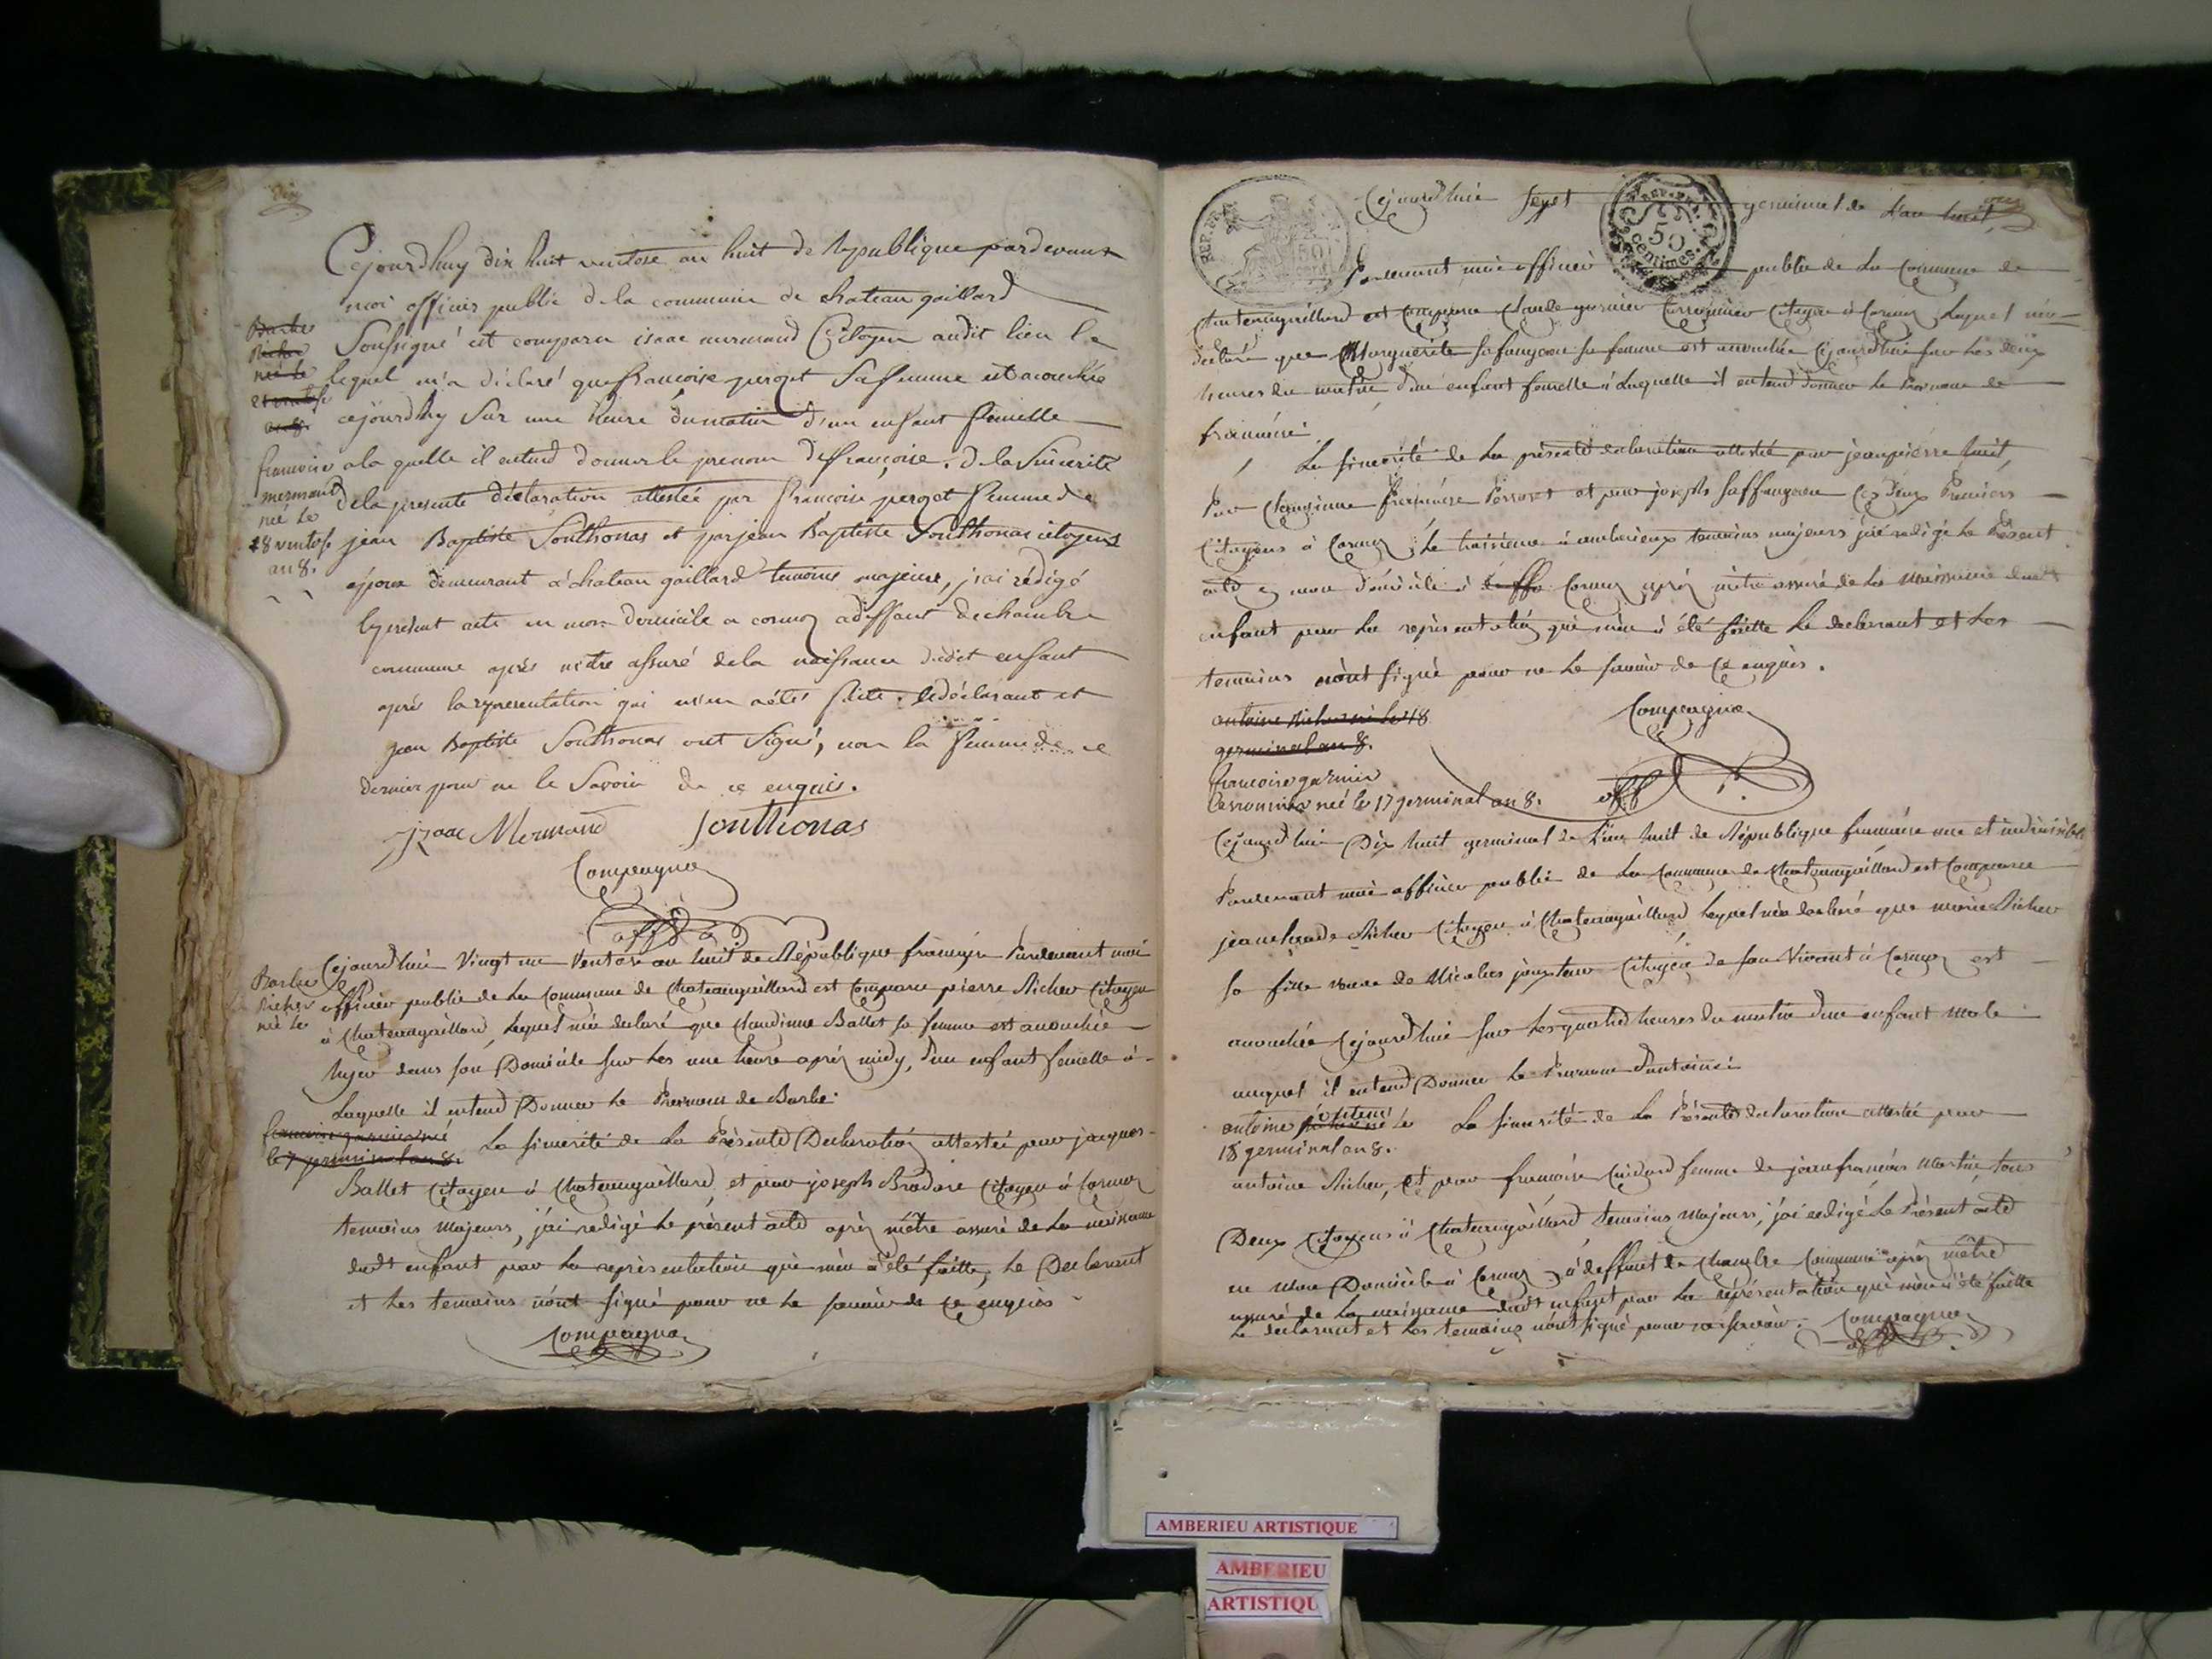 dix
Cejourdhuy dix huit ventose an huit de Republique pardevant
moi officier public de la commune de chateau gaillard
Soussigné est comparu isaac mermand Citoyen audit lieu le
lequel m'a déclaré que francoise perozet Sa femme est acouchée
cejourdhuy Sur une heure du matin d'un enfant femelle
a la quelle il entend donner le prenom de francoise. de la Sincerité
de la presente déclaration attestée par francoise perozet femme de
jean Baptiste Sonthonas et par jean Baptiste Sonthonas citoyens
époux demeurant a chateau gaillard temoins majeurs, j'ai rédigé
le present acte en mon domicile a cormoz a deffaut de chambre
commune après m'etre assuré de la naissance dudit enfant
après la representation qui m'en a été faite. le déclarant et
jean Baptiste Sonthonas ont Signé, non la femme de ce
dernier pour ne le Savoir de ce enquis.
Barbe
Richer
né le
ventose
an 8.
francoise
mermand
né le
18 ventose
an 8.
Izaac Mermand Sonthonas
Compagnon
off
Cejourdhui Vingt un Ventose an huit de République françoise Pardevant moi
officier public de la Commune de Chateaugaillard est Comparu pierre Richer Citoyen
à Chateaugaillard, Lequel m'a declaré que Claudinne Ballet sa femme est acouchée
hyer dans son Domicile sur les une heure après midy, d'un enfant femelle à
Laquelle il entend Donner le Prenom de Barbe.
La sincerité de La Présente Declaration attestée par jacques
Ballet Citoyen à Chateaugaillard, et par joseph Citoyen à Cormoz
temoins Majeurs, j'ai redigé le présent acte après m'être assuré de La naissance
dudt enfant par La représentation qui m'en a été faitte, Le Declarant
et Les temoins n'ont signé pour ne le savoir de ce enquis
Barbe
Richer
né le
francoise garnier né
le 7 germinal an 8.
Compagnon
onze
REP. FRA.
50
REP. FRA.
50
centimes
Cejourdhui Sept germinal de L'an huit,
Pardevant moi officier public de La Commune de
Chateaugaillard est Comparu Claude garnier Citoyen à Cormoz Lequel m'a
declaré que Marguerite sa femme est acouchée Cejourdhui sur Les deux
heures du matin d'un enfant femelle à Laquelle il entend donner le Prenom de
francoise.
La sincerité de La présente declaration attestée par jean pierre
Par francoise Perroset et par joseph Ces Deux Premiers
Citoyens à Cormoz, Le troisieme à amberieux temoins majeurs j'ai redigé le Présent
acte en mon domicile à Cormoz après m'être assuré de La naissance dudt
enfant par La représentation qui m'en à été faitte Le declarant et Les
temoins n'ont signé pour ne le savoir de ce enquis.
antoine Richer né le 18
germinal an 8.
francoise garnier
né le 17 germinal an 8.
Compagnon
off
Cejourdhui Dix huit germinal de L'an huit de République francoise une et indivisible
Pardevant moi officier public de La Commune de Chateaugaillard est Comparu
jean claude Richer Citoyen à Chateaugaillard Lequel m'a declaré que marie Richer
sa fille veuve de Nicolas Citoyen de son Vivant à Cormoz est
acouchée Cejourdhui sur Les quatre heures du matin d'un enfant Male
auquel il entend Donner Le Prenom d'antoine.
antoine né Le
18 germinal an 8.
La sincerité de La Présente declaration attestée par
antoine Richer, et par francoise femme de jean francois Martin, tous
Deux Citoyens à Chateaugaillard temoins Majeurs, j'ai redigé Le Présent acte
en Mon Domicile à Cormoz, à deffaut de Chambre Commune après m'être
assuré de La naissance dudt enfant par La représentation qui m'en a été faitte
Le declarant et Les temoins n'ont signé pour ne savoir. Compagnon
off
AMBERIEU ARTISTIQUE
AMBERIEU
ARTISTIQU